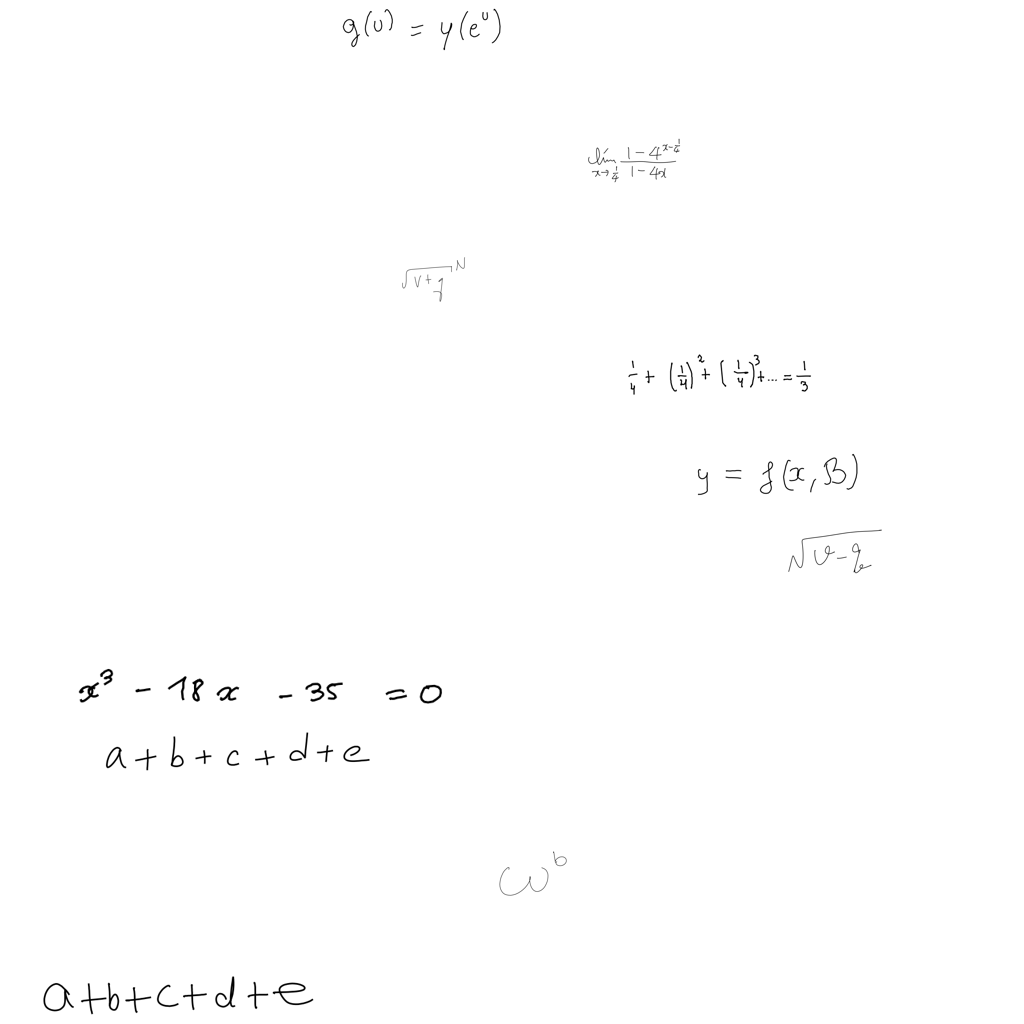 g(u) = y(e^u)
lim_{x→1/4} (1-4^{x-1/4})/(1-4x)
√(v+q)^N
1/4 + (1/4)^2 + (1/4)^3 + ... = 1/3
y = f(x, B)
√(v-q)
x^3 - 18x - 35 = 0
a+b+c+d+e
ω^b
a+b+c+d+e